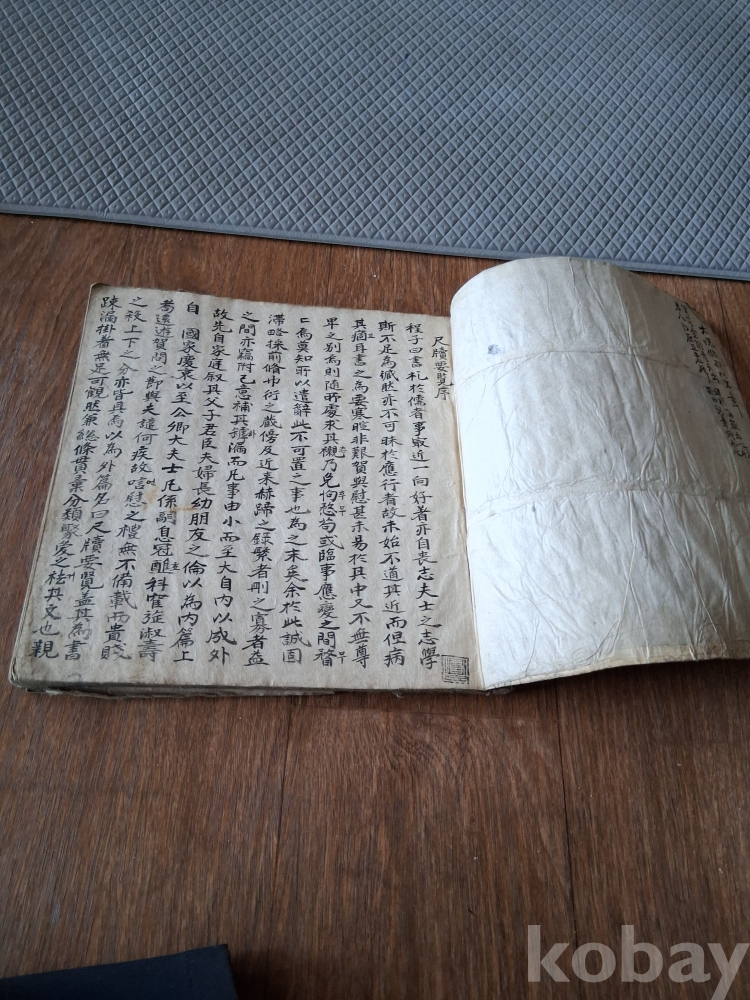 尺牘要覽序
程子曰書札於儒者事取近一向好著亦自喪志夫士之志學
斯不足為誠然亦不可昧於應行者故未始不道其近而但病
其簡耳書之為要寒暄非艱賀與慰甚未易於其中又不無尊
卑之別為則隨所處求其襯乃免徇愁苟或臨事應變之間瞀
亡為莫知所以遣辭此不可置之事也為之末矣余於此誠固
滯略採前脩巾衍之戲傍及近來赫蹄之錄繁者刪之寡者益
之間亦竊附己意補其罅漏而凡事由小而至大自內以成外
故先自家庭叙其父子君臣夫婦長幼朋友之倫以為內篇上
自 國家慶哀以至公卿大夫士凡係嗣息冠醮科宦㫌淑壽
耇遠遊賀問之節與夫譴何疾故唁慰之禮無不備載而貴賤
之殺上下之分亦皆具為以為外篇名曰尺牘要覽蓋其為書
踈漏掛者無足可觀然兼總條貫彙分類聚爰之祛其文也親
kobay